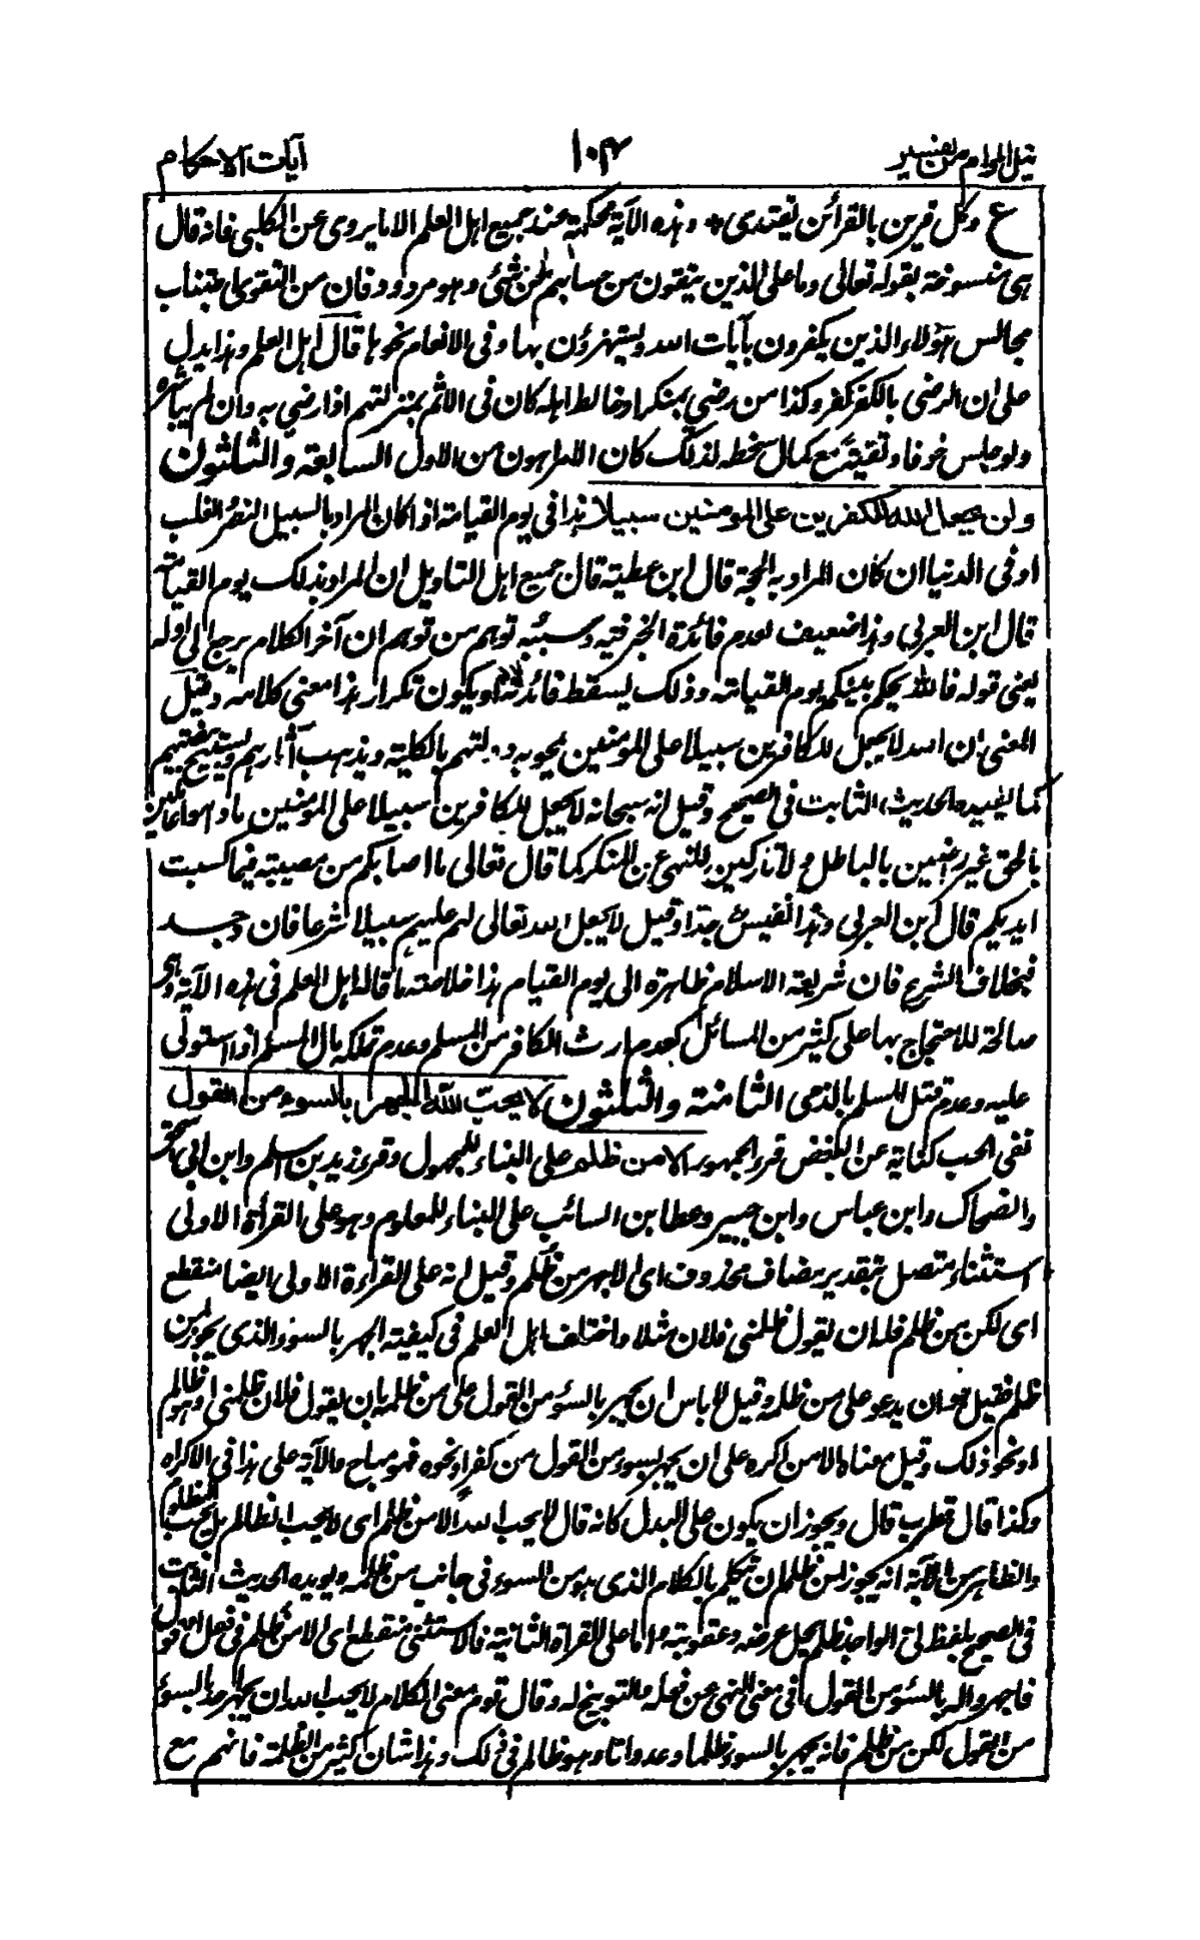 نيل المرام من تفسير ١٠٤ آيات الاحكام
ع وكل قرين بالقرائن يقتدى * وهذه الآية محكمة عند جميع اهل العلم الا ما يروى عن الكلبى فانه قال
هى منسوخة بقوله تعالى وما على الذين يتقون من حسابهم من شئ وهو مردود فان من التقوى اجتناب
مجالس هؤلاء الذين يكفرون بآيات الله ويستهزؤن بها وفى الانعام نحوها قال اهل العلم وهذا يدل
على ان الرضى بالكفر كفر وكذا من رضى بمنكر او خالط اهله كان فى الاثم بمنزلتهم اذا رضى به وان لم يباشره
ولو جلس خوفا وتقية مع كمال سخطه لذلك كان الامر اهون من الاول السابعة والثلثون
ولن يجعل الله للكفرين على المومنين سبيلا هذا فى يوم القيامة اذا كان المراد بالسبيل النصر والغلب
او فى الدنيا ان كان المراد به الحجة قال ابن عطية قال جميع اهل التاويل ان المراد بذلك يوم القيامة
قال ابن العربى وهذا ضعيف لعدم فائدة الخبر فيه وسببه توهم من توهم ان آخر الكلام يرجع الى اوله
يعنى قوله فالله يحكم بينكم يوم القيامة وذلك يسقط فائدته اذ يكون تكرارا هذا معنى كلامه وقيل
المعنى ان الله لا يجعل للكافرين سبيلا على المومنين يمحو به دولتهم بالكلية ويذهب آثارهم ويستبيح بيضتهم
كما يفيده الحديث الثابت فى الصحيح وقيل انه سبحانه لا يجعل للكافرين سبيلا على المومنين ما داموا عاملين
بالحق غير راضين بالباطل ولا تاركين للنهى عن المنكر كما قال تعالى ما اصابكم من مصيبة فيما كسبت
ايديكم قال ابن العربى وهذا نفيس جدا وقيل لا يجعل الله تعالى لهم عليهم سبيلا شرعا فان وجد
فبخلاف الشرع فان شريعة الاسلام ظاهرة الى يوم القيام هذا خلاصة ما قاله اهل العلم فى هذه الآية وهى
صالحة للاحتجاج بها على كثير من المسائل كعدم ارث الكافر من المسلم وعدم تملكه مال المسلم اذا استولى
عليه وعدم قتل المسلم بالذمى الثامنة والثلثون لا يحب الله الجهر بالسوء من القول
نفى الحب كناية عن البغض قرء الجمهور الا من ظلم على البناء للمجهول وقرء زيد بن اسلم وابن ابى اسحق
والضحاك وابن عباس وابن جبير وعطا بن السائب على البناء للمعلوم وهو على القرأة الاولى
استثناء متصل بتقدير مضاف محذوف اى الا جهر من ظلم وقيل انه على القراءة الاولى ايضا منقطع
اى لكن من ظلم فله ان يقول ظلمنى فلان مثلا واختلف اهل العلم فى كيفية الجهر بالسوء والذى يجوز لمن
ظلم فقيل هو ان يدعو على من ظلمه وقيل لا باس ان يجهر بالسوء من القول على من ظلمه بان يقول فلان ظلمنى او هو ظالم
او نحو ذلك وقيل معناه الا من اكره على ان يجهر بسوء من القول من كفر او نحوه فهو مباح والآية على هذا فى الاكراه
وكذا قال قطرب قال ويجوز ان يكون على البدل كانه قال لا يحب الله الا من ظلم اى لا يحب الظالم بل يحب المظلوم
والظاهر من الآية انه يجوز لمن ظلم ان يتكلم بالكلام الذى هو من السوء فى جانب من ظلمه ويويده الحديث الثابت
فى الصحيح بلفظ لى الواجد ظلم يحل عرضه وعقوبته واما على القرأة الثانية فالاستثنى منقطع اى الا من ظلم فى فعل او قول
فاجهروا له بالسوء من القول فى معنى النهى عن فعله والتوبيخ له وقال قوم معنى الكلام لا يحب الله ان يجهر احد بالسوء
من القول لكن من ظلم فانه يجهر بالسوء ظلما وعدوانا وهو ظالم فى ذلك وهذا شان كثير من الظلمة فانهم مع